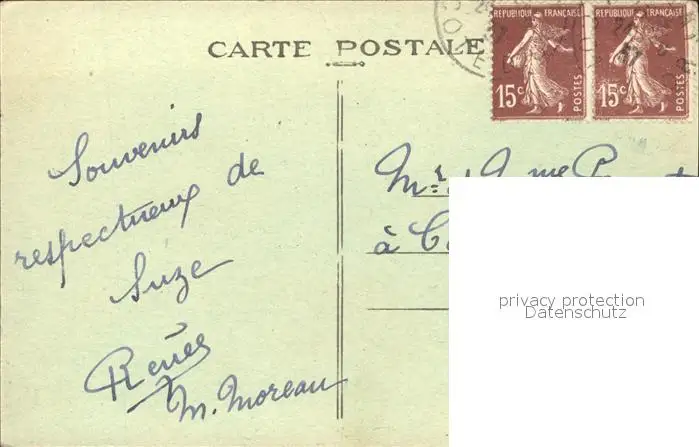 CARTE POSTALE
RÉPUBLIQUE FRANÇAISE
15c POSTES
RÉPUBLIQUE FRANÇAISE
15c POSTES
Souvenirs
respectueux de
Suze
Renée
M. Moreau
Mr & Mme
à
privacy protection
Datenschutz